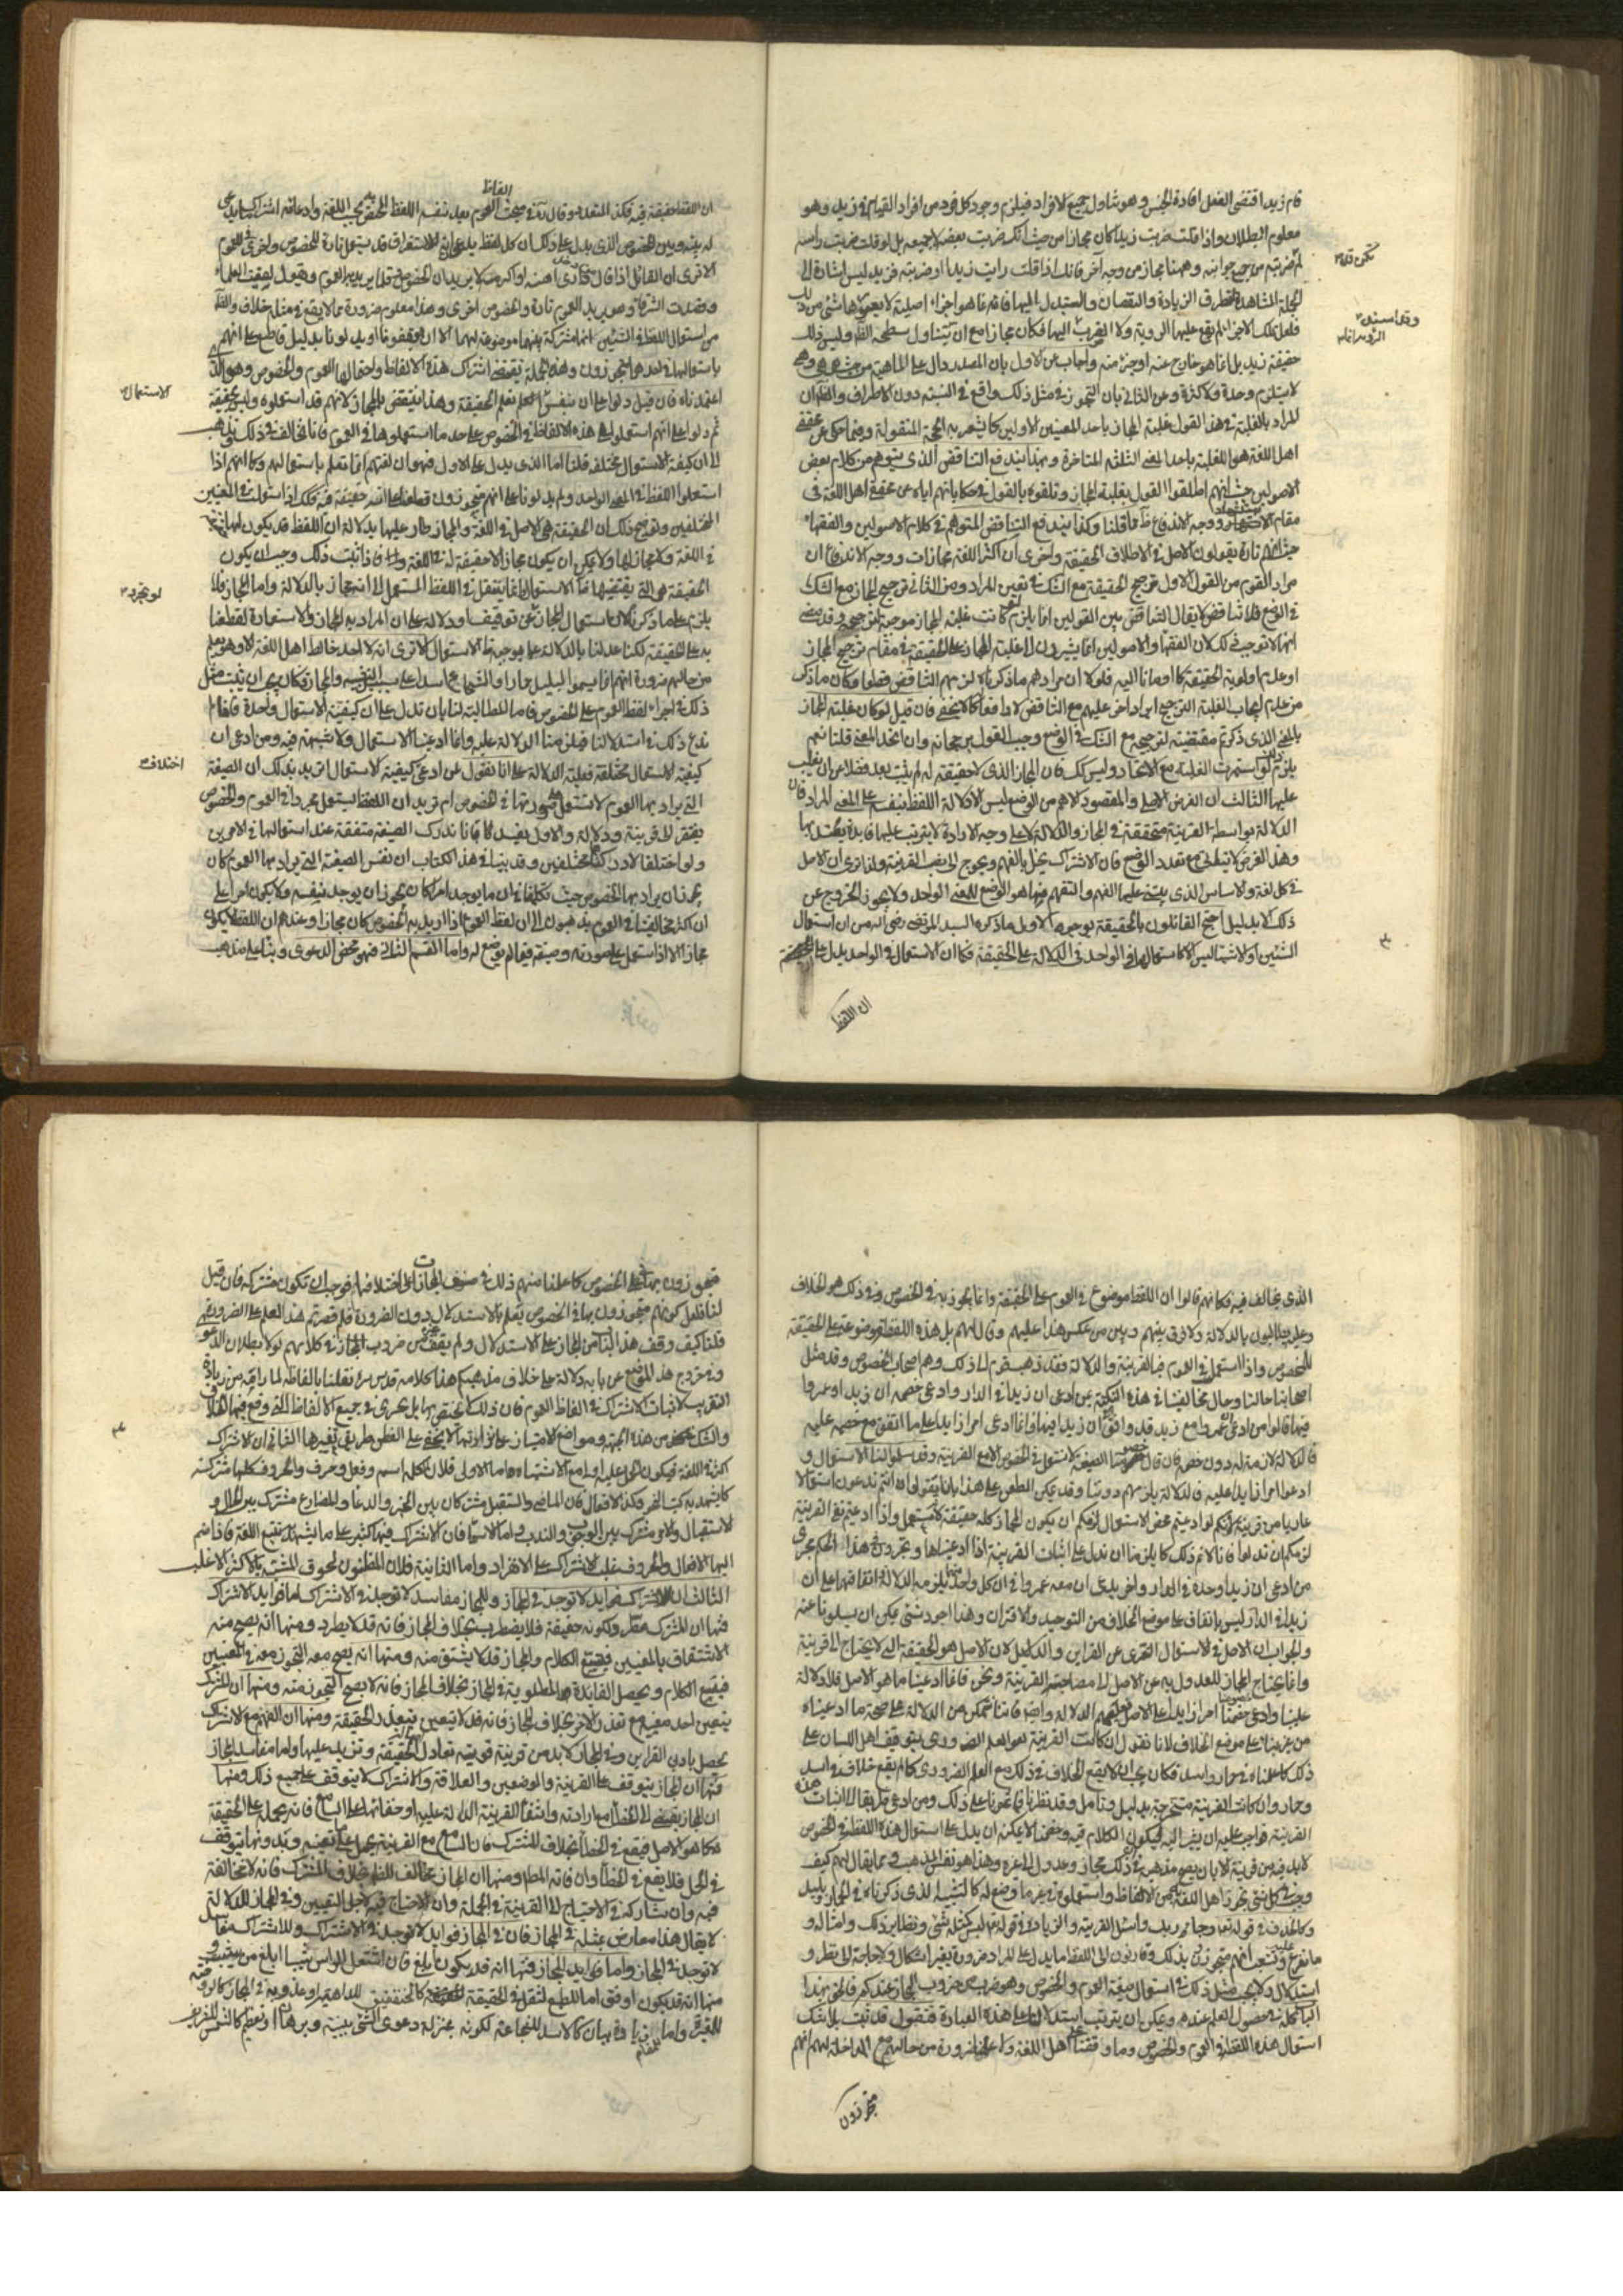 قام زيد اقتضى الفعل افادة الجنس وهو يتناول جميع الافراد فيلزم وجود كل فرد من افراد القيام في زيد وهو
معلوم البطلان واذا قلت ضربت زيدا كان مجازا من حيث انك ضربت بعضه لا جميعه بل لو قلت ضربت راسه
لم تضربه من جميع جوانبه وههنا مجاز من وجه آخر فانك اذا قلت رايت زيدا او ضربته فزيد ليس اشارة الى
الجملة المشاهدة لتطرق الزيادة والنقصان والتبدل اليها فانه
فلعل تلك الاجزاء لم يقع عليها الروية ولا الضرب
حقيقة زيد بل انما هو خارج عنه او جزء منه واجاب عن الاول بان المصدر دال على الماهية من حيث هي وهي
لا يستلزم وحدة ولا كثرة وعن الثاني بان التجوز في مثل ذلك واقع في النسبة دون الاطراف
المراد بالغلبة في هذا القول غلبة المجاز باحد المعنيين الاولين كما يشعر به الحجة المنقولة وفيما حكى عن محققي
اهل اللغة هو الغلبة باحد المعنى الثلثة المتاخرة وبهذا يندفع التناقض الذي يتوهم من كلام بعض
الاصوليين حيث انهم اطلقوا القول بغلبة المجاز وتلقوه بالقول في حكاياتهم اياه عن محققي اهل اللغة في
مقام الاستشهاد ووجه الاندفاع ظ مما قلنا وكذا يندفع التناقض المتوهم في كلام الاصوليين والفقهاء
حيث انهم تارة يقولون الاصل في الاطلاق الحقيقة واخرى ان اكثر اللغة مجازات ووجه الاندفاع ان
مراد القوم من القول الاول ترجيح الحقيقة مع الشك في تعيين المراد ومن الثاني ترجيح المجاز مع الشك
في الوضع فلا تناقض لا يقال التناقض بين القولين انما يلزم لو كانت غلبة المجاز موجبة لترجيحه وقد مضى
انها لا توجب ذلك لان الفقهاء والاصوليين انما يشيرون الى غلبة المجاز على الحقيقة في مقام ترجيح المجاز
او عدم اولوية الحقيقة كما اومأنا اليه فلولا ان مرادهم ما ذكرناه لزمهم التناقض قطعا وكان ما ذكر
من عدم ايجاب الغلبة الترجيح ايرادا اخر عليهم مع التناقض لا دافعا كما لا يخفى فان قيل لو كان غلبة المجاز
بالمعنى الذي ذكرتم مقتضية لترجيحه مع الشك في الوضع وجب القول برجحانه وان اتحد المعنى قلنا نعم
يلزم ذلك لو استمرت الغلبة مع الاتحاد وليس كك فان المجاز الذي لا حقيقة له لم يثبت بعد فضلا عن ان يغلب
عليها الثالث ان الغرض الاصلي والمقصود الاهم من الوضع ليس الا دلالة اللفظ بنفسه على المعنى المراد فان
الدلالة بواسطة القرينة متحققة في المجاز والدلالة لا على وجه الارادة لا يترتب عليها فايدة يعتد بها
وهذا الغرض لا يبطل مع تعدد الوضع فان الاشتراك يخل بالفهم ويحوج الى نصب القرينة ولذا ترى ان الاصل
في كل لغة والاساس الذي يبتنى عليها الفهم والتفهيم فيها هو الوضع للمعنى الواحد ولا يجوز الخروج عن
ذلك الا بدليل احتج القائلون بالحقيقة بوجوه الاول ما ذكره السيد المرتضى رضى الله من ان استعمال
الشيئين او الاشياء ليس الا كاستعمالها في الواحد في الدلالة على الحقيقة فكما ان الاستعمال في الواحد يدل على الحقيقة
ان اللفظ
الفاظ
ان اللفظ حقيقة فيه فكذا المتعدد وقال ره في مبحث العموم بعد نفيه اللفظ المختص به بحسب اللغة وادعائه اشتراك ما يدعى
له بينه وبين الخصوص الذي يدل على ذلك ان كل لفظ يدعى انه للاستغراق قد يستعمل تارة للخصوص واخرى في العموم
الا ترى ان القائل اذا قال من دخل داري اهنته او اكرمته لا يريد ان الخصوص وقلما يريد به العموم ويقول لقيت العلماء
وقصدت الشرفاء وهو يريد العموم تارة والخصوص اخرى وهذا معلوم ضرورة مما لا يقع في مثله خلاف والظ
من استعمال اللفظ في الشيئين انها مشتركة بينهما وموضوعة لهما الا ان يوقفونا او يدلونا بدليل قاطع على انهم
باستعمالها في احدهما متجوزون وهذه الجملة يقتضي اشتراك هذه الالفاظ واحتمالها العموم والخصوص وهو الذي
اعتمدناه فان قيل دلوا على ان بنفس الاستعمال تعلم الحقيقة وهذا ينتقض بالمجاز لانهم قد استعملوه وليس بحقيقة
ثم دلوا على انهم استعملوا هذه الالفاظ في الخصوص على حد ما استعملوها في العموم فانا نخالف في ذلك ونذهب
الى ان كيفية الاستعمال مختلفة قلنا اما الذي يدل على الاول فهو ان لغتهم انما تعلم باستعمالهم وكما انهم اذا
استعملوا اللفظ في المعنى الواحد ولم يدلونا على انهم متجوزون قطعنا على انه حقيقة فيه فكك اذا استعملوه في المعنيين
المختلفين وتوضيح ذلك ان الحقيقة هي الاصل في اللغة والمجاز طار عليها بدلالة ان اللفظ قد يكون لها حقيقة
في اللغة ولا مجاز لها ولا يمكن ان يكون مجاز لا حقيقة له في اللغة فاذا ثبت ذلك وجب ان يكون
الحقيقة هي التي يقتضيها ظ الاستعمال وانما ينتقل في اللفظ المستعمل الى انه مجاز بالدلالة واما المجاز فلا
يلزم على ما ذكرناه لان استعمال المجاز عن توقيف ودلالة على ان المراد به المجاز والاستعارة لقطعنا
به على الحقيقة لكنا عدلنا بالدلالة عما يوجبه ظ الاستعمال الا ترى انه لا احد خالط اهل اللغة الا وهو يعلم
من حالهم ضرورة انهم انما سموا البليد حمارا والشجاع اسدا على سبيل التشبيه والمجاز فكان يجب ان يثبت مثل
ذلك في اجراء لفظ العموم على الخصوص فاما المطالبة لنا بان ندل على ان كيفية الاستعمال واحدة فانما
ندع ذلك في استدلالنا فيلزمنا الدلالة عليه وانما ادعينا الاستعمال ولا شبهة فيه ومن ادعى ان
كيفية الاستعمال مختلفة فعليه الدلالة على انا نقول لمن ادعى كيفية الاستعمال اتريد بذلك ان الصيغة
التي يراد بها العموم لا تستعمل على صورتها في الخصوص ام تريد ان اللفظ يستعمل مجردا في العموم والخصوص
يفتقر الى قرينة ودلالة والاول يفسد لانا ندرك الصيغة متفقة عند استعمالها في الامرين
ولو اختلفا لادركناهما مختلفين وقد بينا في هذا الكتاب ان نفس الصيغة التي يراد بها العموم كان
يجوز ان يراد بها الخصوص حيث تكلمنا في ان ما يوجد امرا كان يجوز ان يوجد بنفسه ولا يكون امرا على
ان اكثر مخالفينا في العموم يذهبون الى ان لفظ العموم اذا اريد به الخصوص كان مجازا وعندهم ان اللفظ لا يكون
مجازا الا اذا استعمل على صورته وصيغته فيما لم يوضع له واما القسم الثاني فهو محض الدعوى وبناء على مذهب
تكن قد
الاستعمال
لو تجرد
اختلاف
الذي يخالف فيه فكانهم قالوا ان اللفظ موضوع في العموم على الحقيقة وانما يتجوز به في الخصوص وفي ذلك هو الخلاف
وعليه يطالبون بالدلالة ولا فرق بينهم وبين من عكس هذا عليهم وقال لهم بل هذه اللفظة موضوعة على الحقيقة
للخصوص واذا استعمل في العموم فبالقرينة والدلالة فقد ذهب قوم الى ذلك وهم اصحاب الخصوص وقد مثل
اصحابنا حالنا وحال مخالفينا في هذه النكتة بمن ادعى ان زيدا في الدار وادعى خصمه ان زيدا وعمروا
فيها قالوا من ادعى ان عمروا مع زيد قد وافق في ان زيدا فيها وانما ادعى امرا زايدا على ما اتفق مع خصمه عليه
فالدلالة لازمة له دون خصمه فان قال خصومنا الصيغة لا تستعمل في الخصوص الا مع القرينة وقد سلموا لنا الاستعمال و
ادعوا امرا زايدا عليهم فالدلالة يلزمهم دوننا وقد يمكن الطعن على هذا بان يقولوا ان انتم تدعون استعمالا
عاريا من قرينة لانكم لو ادعيتم محض الاستعمال لزمكم ان يكون المجاز كله حقيقة لانه مستعمل واذا ادعيتم نفي القرينة
لزمكم ان تدلوا فانا لا نم ذلك كما يلزمنا ان ندل على اثبات القرينة اذا ادعيناها ويجرون في هذا الحكم مجرى
من ادعى ان زيدا وحده في الدار واخر يدعي ان معه عمروا في ان كل واحد منهما يلزمه الدلالة لاتفاقهما على ان
زيدا في الدار ليس باتفاق على موضع الخلاف من التوحيد والاقتران وهذا اجود شئ يمكن ان يسالونا عنه
والجواب ان الاصل في الاستعمال التعرى عن القراين والدلايل لان الاصل هو الحقيقة التي لا يحتاج الى قرينة
وانما يحتاج المجاز للعدول به عن الاصل الى مصاحبة القرينة ونحن فانما ادعينا ما هو الاصل فلا دلالة
علينا وادعى خصمنا امرا زايدا على الاصل فعليهم الدلالة وايضا فاننا نتمكن من الدلالة على صحة ما ادعيناه
من غير بناء على موضع الخلاف لانا نقول ان كانت القرينة هو العلم الضروري بتوقيف اهل اللسان على
ذلك كما علمناه في حمار واسد فكان يجب ان لا يقع الخلاف في ذلك مع العلم الضروري كما لم يقع خلاف في اسد
وحمار وان كانت القرينة مستخرجة بدليل وتامل فقد نظرنا فما عثرنا على ذلك ومن ادعى طريقا الى اثبات هذه
القرينة فواجب عليه ان يشير اليه ليكون الكلام فيه وخصمنا لا يمكنه ان يدل على استعمال هذه اللفظة في الخصوص
لا بد فيه من قرينة الا بان يصح مذهبه في ذلك مجاز وعدول الى غيره وهذا هو نفس المذهب ومما يقال لهم كيف
وجب في كل شئ تجوز اهل اللغة به من الالفاظ واستعملوه في غير ما وضع له كالتشبيه الذي ذكرناه في الحمار وبليد
وكالحذف في قوله تعا وجاء ربك واسئل القرية والزيادة في قوله تعا ليس كمثله شئ ونظاير ذلك وامثاله و
ما تفرع عليه وتشعب انهم متجوزون بذلك وقارنون الى اللفظ ما يدل على المراد ضرورة بغير اشكال ولا حاجة الى نظر و
استدلال ولا يجب مثل ذلك في استعمال صيغة العموم والخصوص وهو ضرب من ضروب المجاز عندكم فالحق بهذا
الباب كله في حصول العلم عندهم ويمكن ان يترتب استدلالنا على هذه العبارة فنقول قد ثبت بلا شك
استعمال هذه اللفظة في العموم والخصوص وما وقفنا على اهل اللغة ولا علمنا ضرورة من حالهم مع المداخلة لهم انهم
متجوزون
متجوزون بها على الخصوص كما علمنا منهم ذلك في صنوف المجازات على اختلافها فوجب ان تكون مشتركة فان قيل
لنا فلعل كونهم متجوزون بها في الخصوص يعلم بالاستدلال دون الضرورة فلم قصرتم هذا العلم على الضرورة
قلنا كيف وقف هذا الباب من المجاز على الاستدلال ولم يقف غيره من ضروب المجاز في كلامهم لولا بطلان الدعوى
وفي خروج هذا الموضع عن بابه دلالة على خلاف مذهبكم هذا كلامه قدس سره نقلنا بالفاظه لما رايته من زيادة
التقريب لاثبات الاشتراك في الفاظ العموم فان ذلك لا يختص بها بل يجرى في جميع الالفاظ التي وقع فيها الخلاف
والشك من هذه الجهة ومواضع الامتياز لا يخفى على الفطن الثاني ان الاشتراك
اكثر في اللغة فيكون الحمل عليه اولى مع الاشتباه اما الاولى فلان الكلمة اسم وفعل وحرف والحروف كلها مشتركة
كما يشهد به كتب النحو وكذا الافعال فان الماضى والمستقبل مشتركان بين الخبر والدعاء والمضارع مشترك بين الحال و
الاستقبال والامر مشترك بين الوجوب والندب واما الاسماء فان الاشتراك فيها كثير على ما يشهد به تتبع اللغة فاذا ضم
اليها الافعال والحروف غلب الاشتراك على الانفراد واما الثانية فلان المظنون لحوق المشتبه بالاكثر الاغلب
الثالث ان للاشتراك فوايد لا توجد في المجاز وللمجاز مفاسد لا توجد في الاشتراك اما فوايد الاشتراك
فمنها ان المشترك مطرد لكونه حقيقة فلا يضطرب بخلاف المجاز فانه قد لا يطرد ومنها انه يصح منه
الاشتقاق بالمعنيين فيتسع الكلام والمجاز قد لا يشتق منه ومنها انه يصح معه التجوز من المعنيين
فيتسع الكلام ويحصل الفائدة المطلوبة في المجاز بخلاف المجاز فانه لا يصح التجوز منه ومنها ان المشترك
يتعين احد معنييه مع تعذر الاخر بخلاف المجاز فانه قد لا يتعين بتعذر الحقيقة ومنها ان الفهم مع الاشتراك
يحصل بادنى القراين وفي المجاز لا بد من قرينة قوية تعادل الحقيقة وتزيد عليها واما مفاسد المجاز
فمنها ان المجاز يتوقف على القرينة والوضعين والعلاقة والاشتراك لا يتوقف على جميع ذلك ومنها
ان المجاز يفضي الى الخطأ مع ارادته وانتفاء القرينة الدالة عليه او خفائها على السامع فانه يحمله على الحقيقة
كما هو الاصل فيقع في الخطأ بخلاف المشترك فان السامع مع القرينة يحمل على ما تعينه وبدونها يتوقف
في الحمل فلا يقع في الخطأ وان فاته المط ومنها ان المجاز مخالف للظ بخلاف المشترك فانه لا مخالفة
فيه وان تشاركه في الاحتياج الى القرينة في الجملة وان الاحتياج فيه لاجل التعيين وفي المجاز للدلالة
لا يقال هذا معارض بمثله في المجاز فان في المجاز فوايد لا توجد في الاشتراك وللاشتراك مفاسد
لا توجد في المجاز واما فوايد المجاز فمنها انه قد يكون ابلغ فان اشتعل الراس شيبا ابلغ من شبت و
منها انه قد يكون اوفق اما للطبع لثقل في الحقيقة كالخنفقيق للداهية او عذوبة في المجاز كالروضة
للمقبرة واما للمقام زيادة بيان كالاسد للشجاع لكونه بمنزلة دعوى الشئ ببينة وبرهان او تعظيم كالشمس للشريف